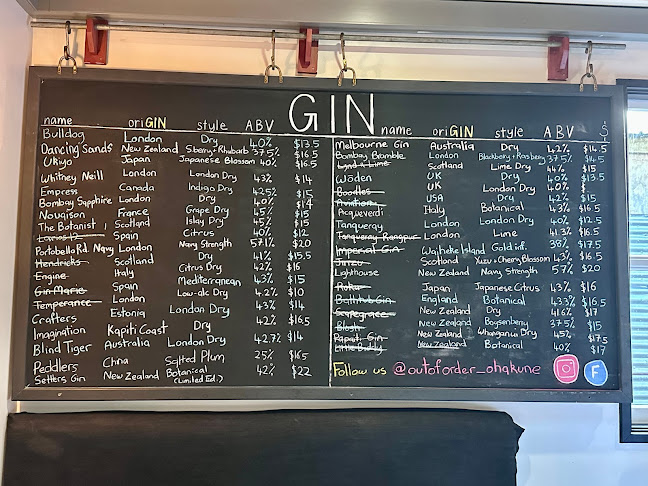 GIN
name oriGIN style ABV
Bulldog London Dry 40% $13.5
Dancing Sands New Zealand Sberry+Rhubarb 37.5% $16.5
Ukiyo Japan Japanese Blossom 40% $16.5
Whitney Neill London London Dry 43% $14
Empress Canada Indigo Dry 42.5% $15
Bombay Sapphire London Dry 40% $14
Nouaison France Grape Dry 45% $15
The Botanist Scotland Islay Dry 45% $15
Larios 12 Spain Citrus 40% $12
Portobello Rd. Navy London Navy Strength 57.1% $20
Hendricks Scotland Dry 41% $15.5
Engine Italy Citrus Dry 42% $16
Gin Marie Spain Mediterranean 43% $15
Temperance London Low-alc Dry 4.2% $10
Crafters Estonia London Dry 43% $14
Imagination Kapiti Coast Dry 42% $16.5
Blind Tiger Australia London Dry 42.7% $14
Peddlers China Salted Plum 25% $16.5
Setters Gin New Zealand Botanical 42% $22
(Limited Ed.)
name oriGIN style ABV $
Melbourne Gin Australia Dry 42% $14.5
Bombay Bramble London Blackberry+Rasberry 37.5% $14.5
Lind + Lime Scotland Lime Dry 44% $15
Wöden UK Dry 40% $13.5
Boodles UK London Dry 40% $
Aviation USA Dry 42% $15
Acqueverdi Italy Botanical 43% $16.5
Tanqueray London London Dry 40% $12.5
Tanqueray Rangpur London Lime 41.3% $16.5
Imperial Gin Waiheke Island Gold inf. 38% $17.5
Jinzu Scotland Yuzu + Cherry Blossom 43% $16.5
Lighthouse New Zealand Navy Strength 57% $20
Roku Japan Japanese Citrus 43% $16
Bathtub Gin England Botanical 43.3% $16.5
Scapegrace New Zealand Dry 41.6% $17
Blush New Zealand Boysenberry 37.5% $15
Papaiti Gin New Zealand Whanganui Dry 45% $17.5
Little Biddy New Zealand Botanical 40% $17
Follow us @outoforder_ohakune
f